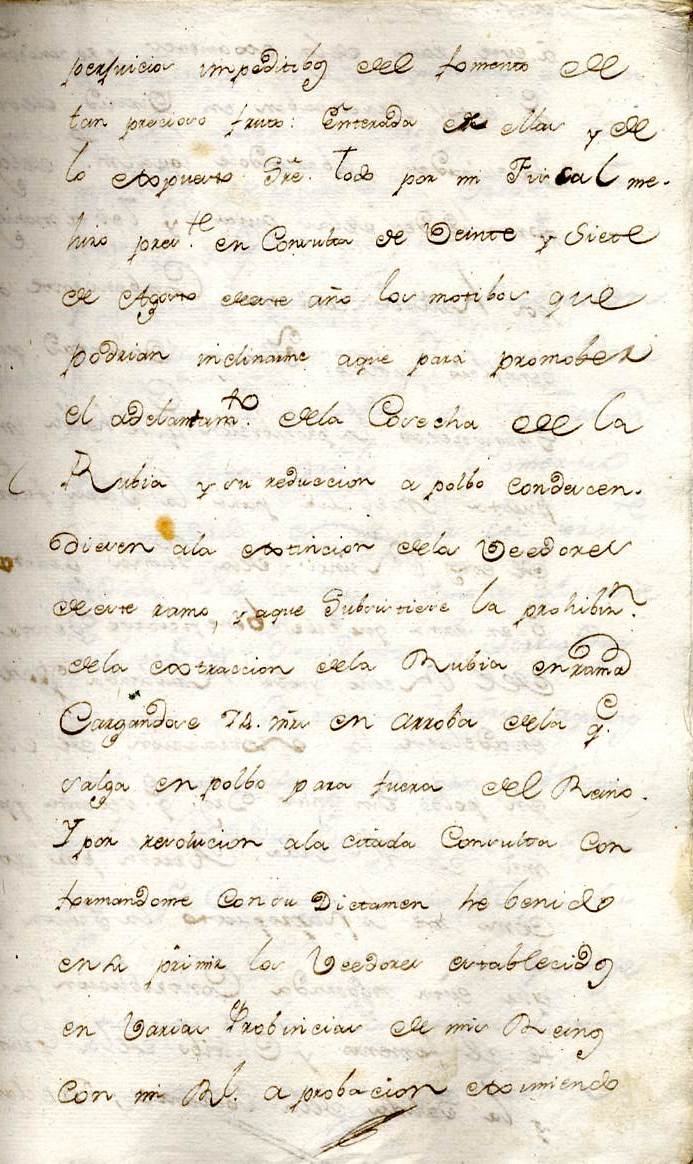 perjuicios impeditibos del fomento de
tan precioso fruto: Enterada de ellas y de
lo expuesto Sre. todo por mi Fiscal me-
hizo pres.te en Consulta de Veinte y Siete
de Agosto de este año los motibos que
podrian inclinarme aque para promober
el adelantam.to dela Cosecha de la
Rubia y su reduccion a polbo condescen-
diesen ala extincion dela Veedores
de este ramo, y aque Subsistiese la prohibin.
dela extraccion dela Rubia en rama
Cargandose 74. mrs en arroba dela q.e
salga en polbo para fuera del Reino.
Y por resolucion ala citada Consulta con
formandome con su Dictamen he benido
en su primir los Veedores establecidos
en Varias Probincias de mis Reinos
con mi Rl. aprobacion eximiendo